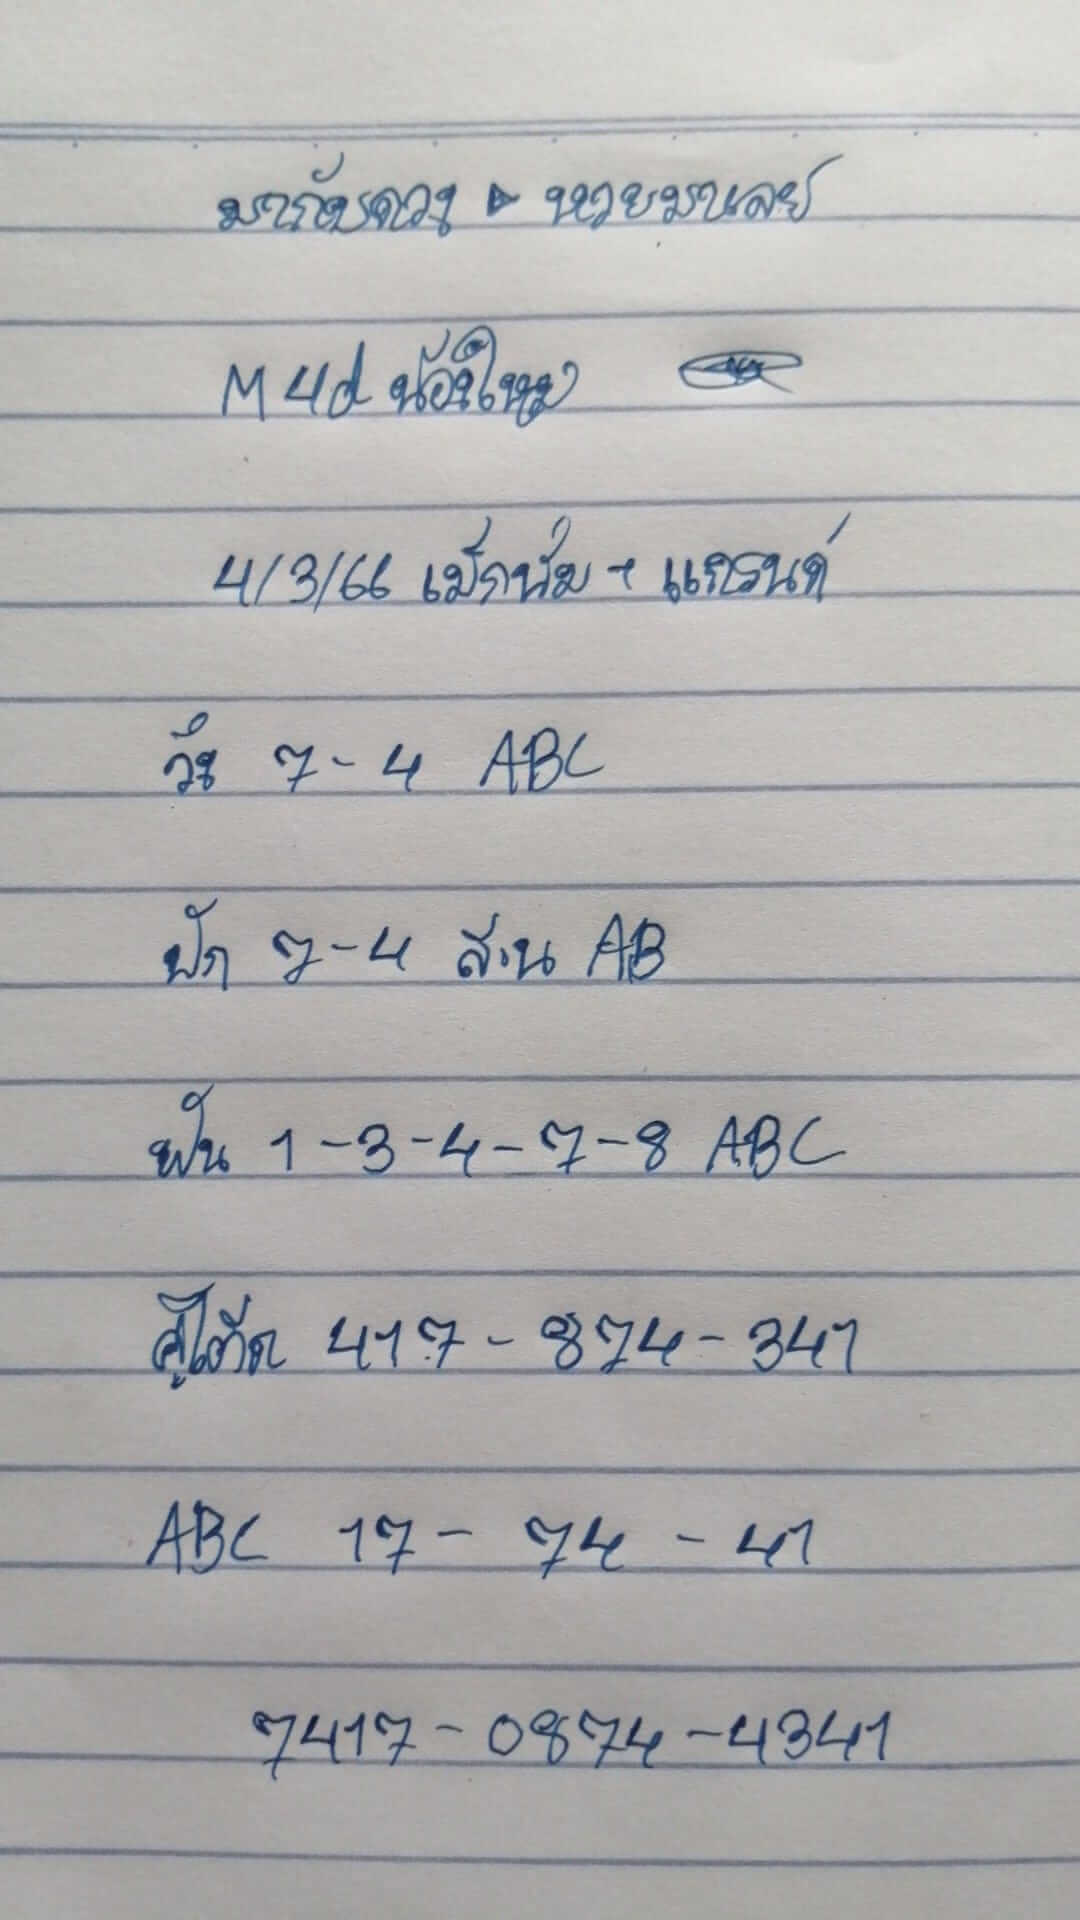 มากับดวง ▶ หวยมาเลย์
M 4d น้องใหม่
4/3/66 เม็กนั่ม + แกรนด์
วิ่ง 7 - 4 ABC
ปัก 7 - 4 ส่วน AB
ฟัน 1 - 3 - 4 - 7 - 8 ABC
417 - 874 - 341
ABC 17 - 74 - 41
7417 - 0874 - 4341